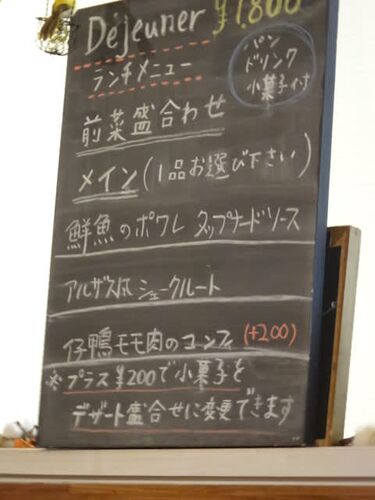 Déjeuner ¥1,800
ランチメニュー
パン
ドリンク
小菓子付
前菜盛合わせ
メイン(1品お選び下さい)
鮮魚のポワレ タップナードソース
アルザス風シュークルート
仔鴨モモ肉のコンフィ (+200)
※プラス¥200で小菓子を
デザート盛合せに変更できます